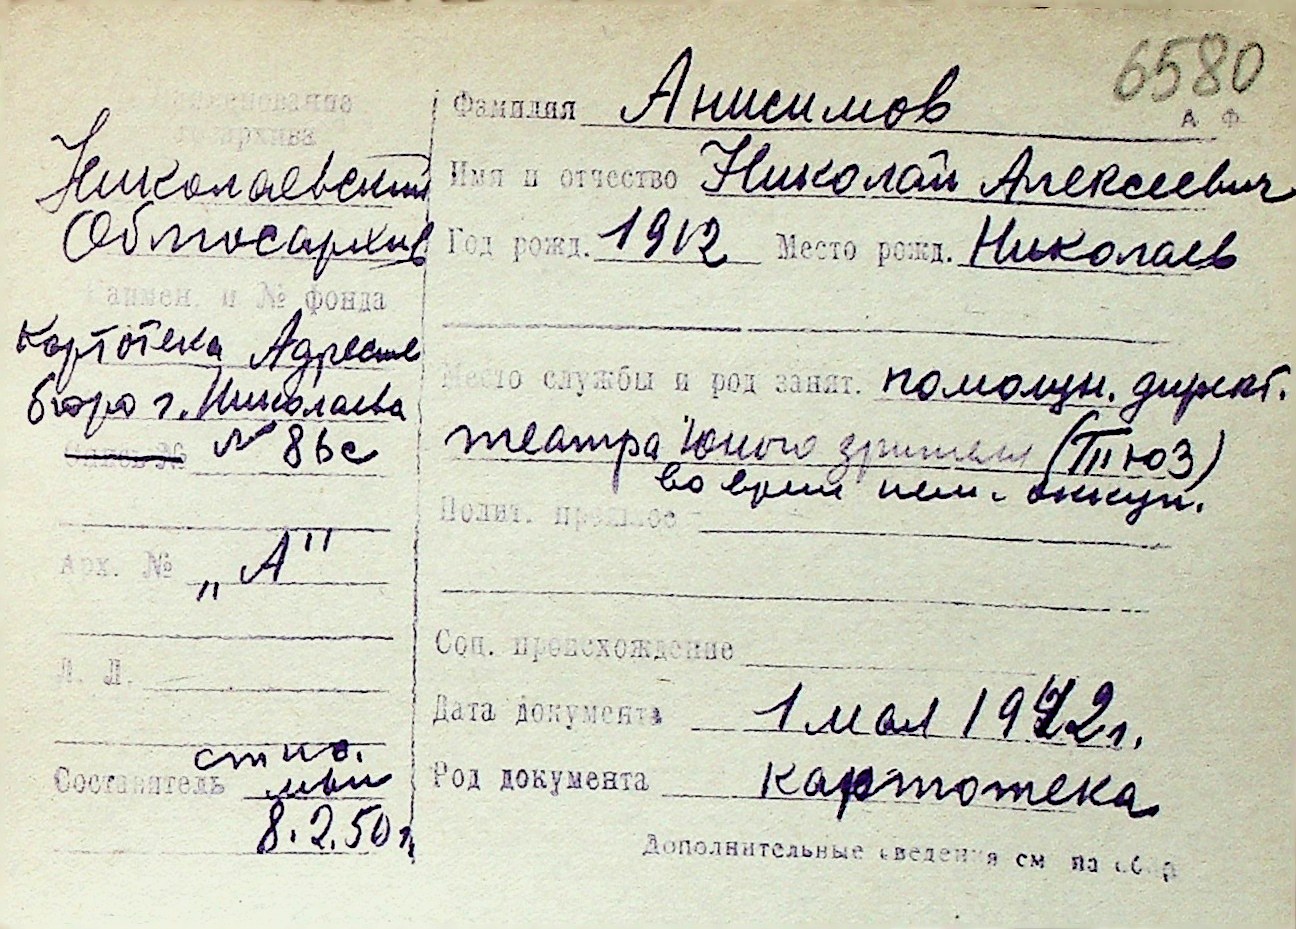 6580
А Ф
Наименование
госархива
Николаевский
Облгосархив
Наимен. и № фонда
Картотека Адресне
бюро г. Николаева
Опись № № 86с
Арх. № „А"
Л. Л.
Составитель
8.2.50 г.
Фамилия Анисимов
Имя и отчество Николай Алексеевич
Год рожд. 1912 Место рожд. Николаев
Место службы и род занят. помощн. директ.
театра юного зрителя (ТЮЗ)
во время нем. оккуп.
Полит. прошлое
Соц. происхождение
Дата документа 1 мая 1942 г.
Род документа картотека
Дополнительные сведения см на обор